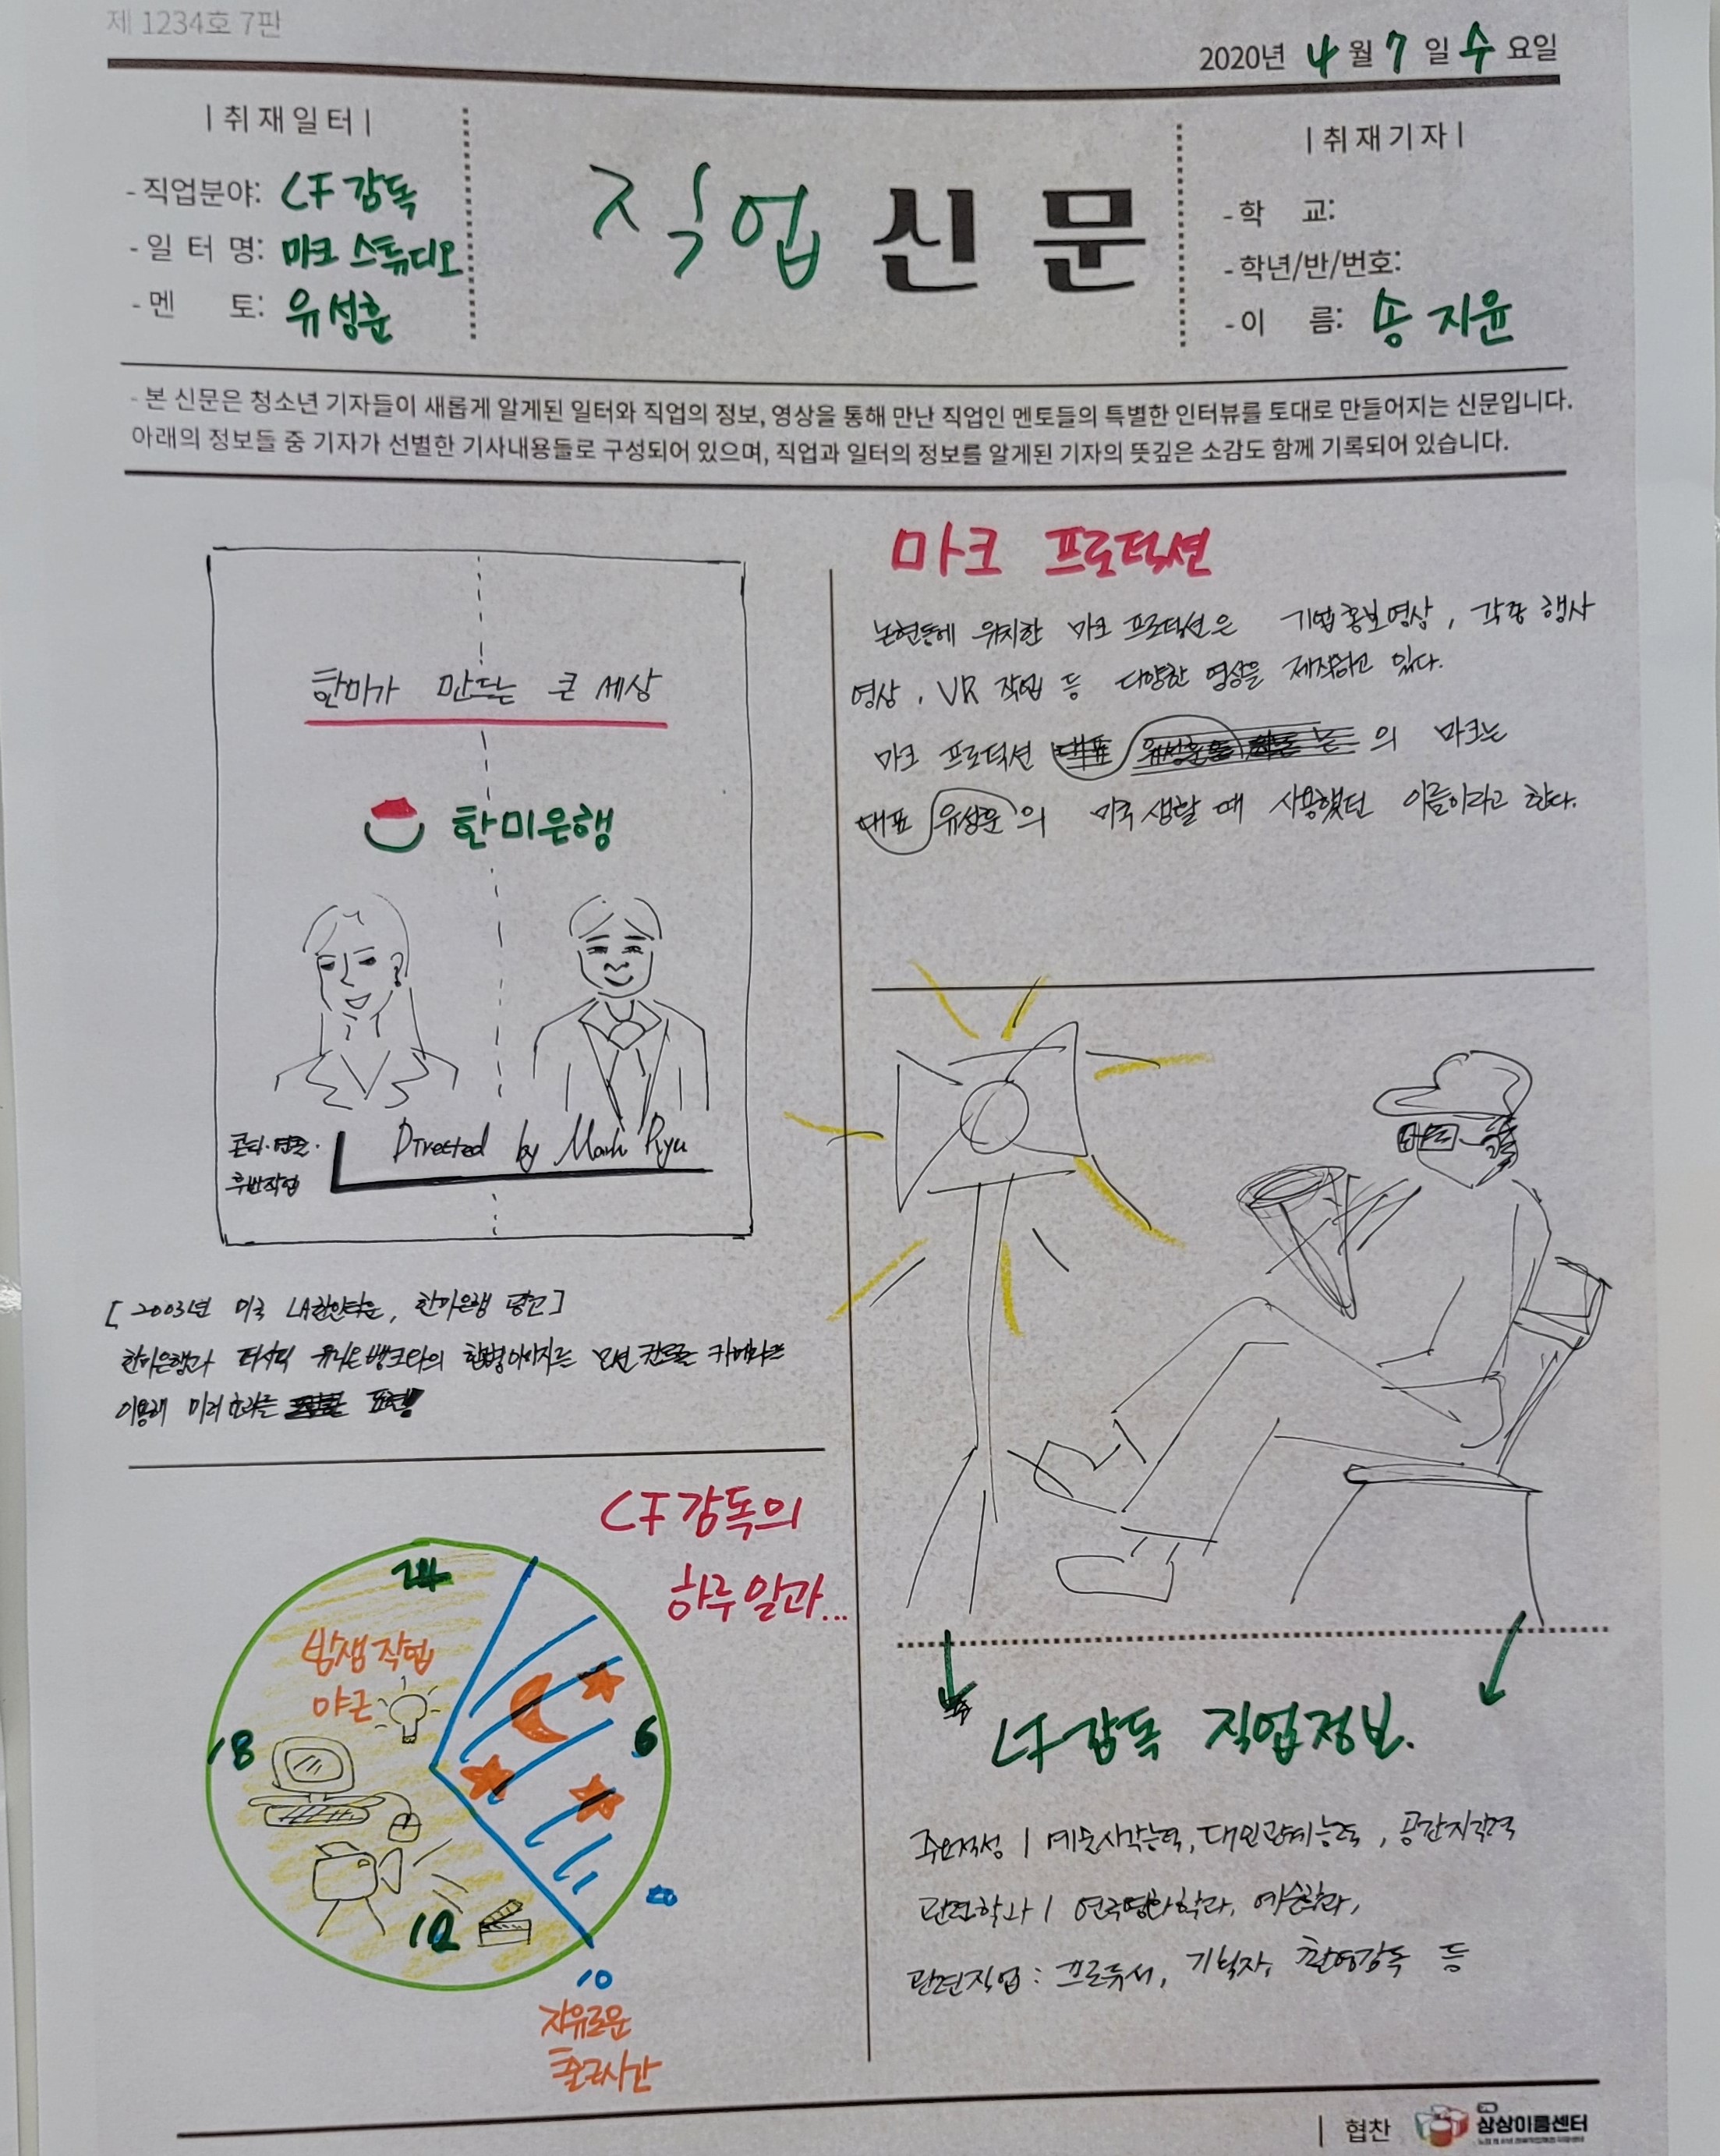 제 1234호 7판
2020년 4월 7일 수요일
|취재일터|
-직업분야: CF 감독
-일 터 명: 마크 스튜디오
-멘 토: 유성훈
직업신문
|취재기자|
-학 교:
-학년/반/번호:
-이 름: 송지윤
- 본 신문은 청소년 기자들이 새롭게 알게된 일터와 직업의 정보, 영상을 통해 만난 직업인 멘토들의 특별한 인터뷰를 토대로 만들어지는 신문입니다.
아래의 정보들 중 기자가 선별한 기사내용들로 구성되어 있으며, 직업과 일터의 정보를 알게된 기자의 뜻깊은 소감도 함께 기록되어 있습니다.
한미가 만드는 큰 세상
한미은행
콘티·연출·
후반작업
Directed by Mark Ryu
[2003년 미국 LA한인타운, 한미은행 광고]
한미은행과 퍼시픽 유니온 뱅크와의 합병이미지를 모션 컨트롤 카메라를
이용해 미러 효과를 표현!
마크 프로덕션
논현동에 위치한 마크 프로덕션은 기업홍보영상, 각종 행사
영상, VR 작업 등 다양한 영상을 제작하고 있다.
마크 프로덕션 의 마크는
대표 유성훈의 미국 생활 때 사용했던 이름이라고 한다.
CF감독의
하루일과...
24
밤샘작업
야근
18
6
12
10
자유로운
출근시간
CF감독 직업정보.
주요적성 | 예술시각능력, 대인관계능력, 공간지각력
관련학과 | 연극영화학과, 예술학과,
관련직업: 프로듀서, 기획자, 촬영감독 등
| 협찬 상상이룸센터